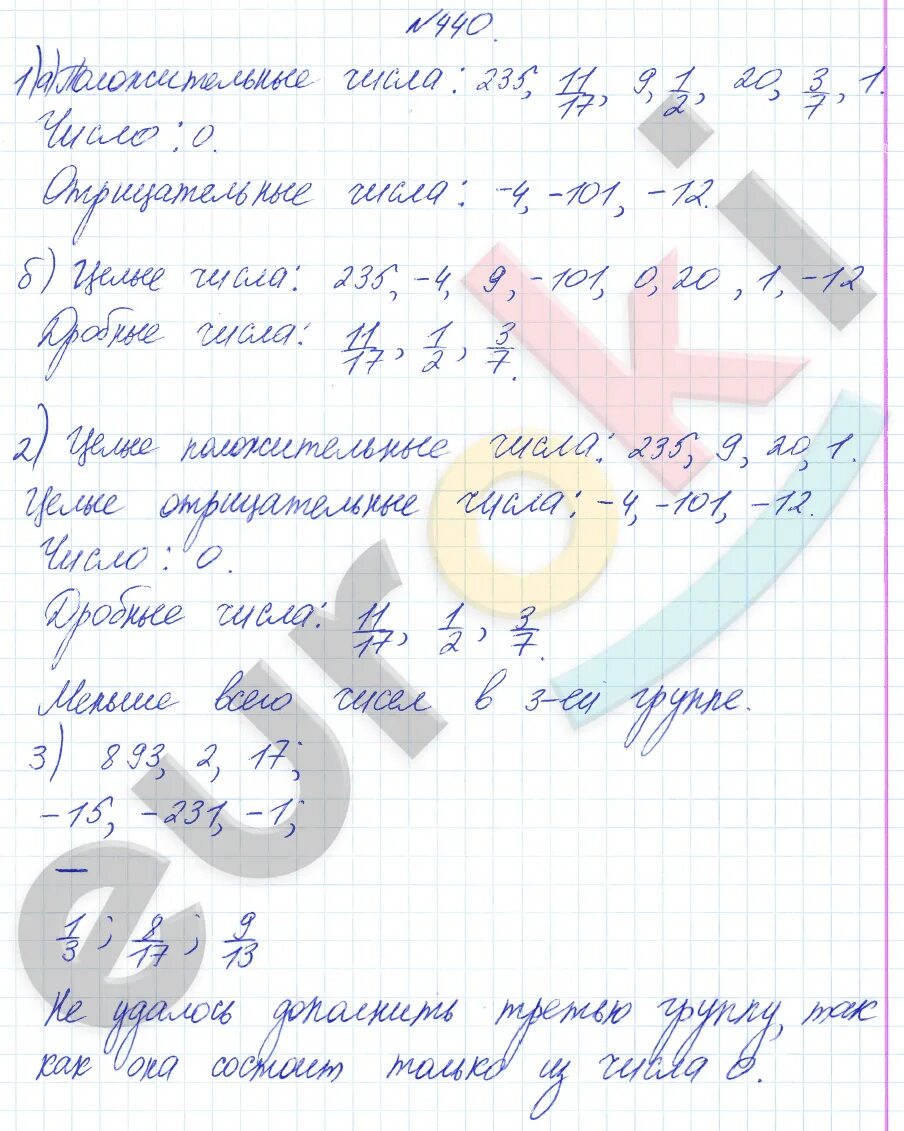 №440.
1) а) Положительные числа: 235, 11/17, 9, 1/2, 20, 3/7, 1.
Число: 0.
Отрицательные числа: -4, -101, -12.
б) Целые числа: 235, -4, 9, -101, 0, 20, 1, -12
Дробные числа: 11/17, 1/2, 3/7.
2) Целые положительные числа: 235, 9, 20, 1.
Целые отрицательные числа: -4, -101, -12.
Число: 0.
Дробные числа: 11/17, 1/2, 3/7.
Меньше всего чисел в 3-ей группе.
3) 893, 2, 17;
-15, -231, -1;
—
1/3; 8/17; 9/13
Не удалось дополнить третью группу, так
как она состоит только из числа 0.
euroki